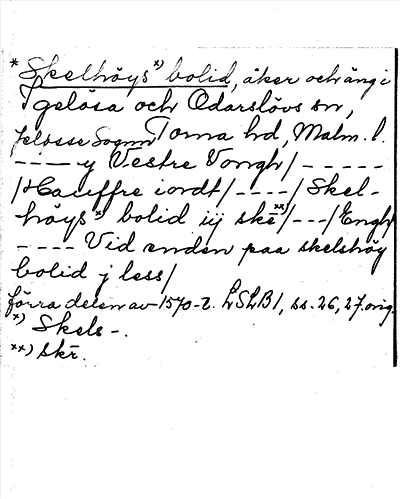 * Skelhöys *) bolid, åker och äng i
Igelösa och Odarslövs sn,
Jelösse Sognn Torna hd, Malm. l.
- - - - y Vestre Vongh / - - - - -
/ Hauffre iordt / - - - - / Skel-
höys *) bolid iij skē **) / - - - / Engh
- - - - Vid enden paa skelshöy
bolid j less /
förra delen av 1570-t. LSLB 1, ss. 26, 27. orig.
*) Skels -.
**) skr.